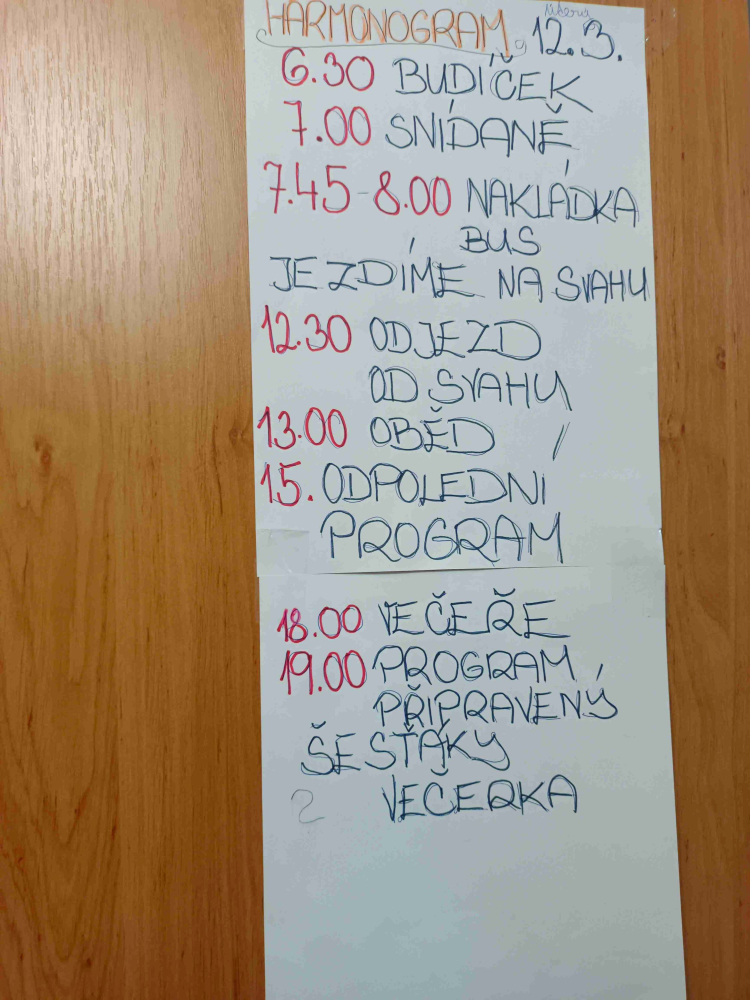 HARMONOGRAM 12.3.
6.30 BUDÍČEK
7.00 SNÍDANĚ
7.45-8.00 NAKLÁDKA
BUS
JEZDÍME NA SVAHU
12.30 ODJEZD
OD SVAHU
13.00 OBĚD
15. ODPOLEDNÍ
PROGRAM
18.00 VEČEŘE
19.00 PROGRAM
PŘIPRAVENÝ
ŠESŤÁKY
? VEČERKA